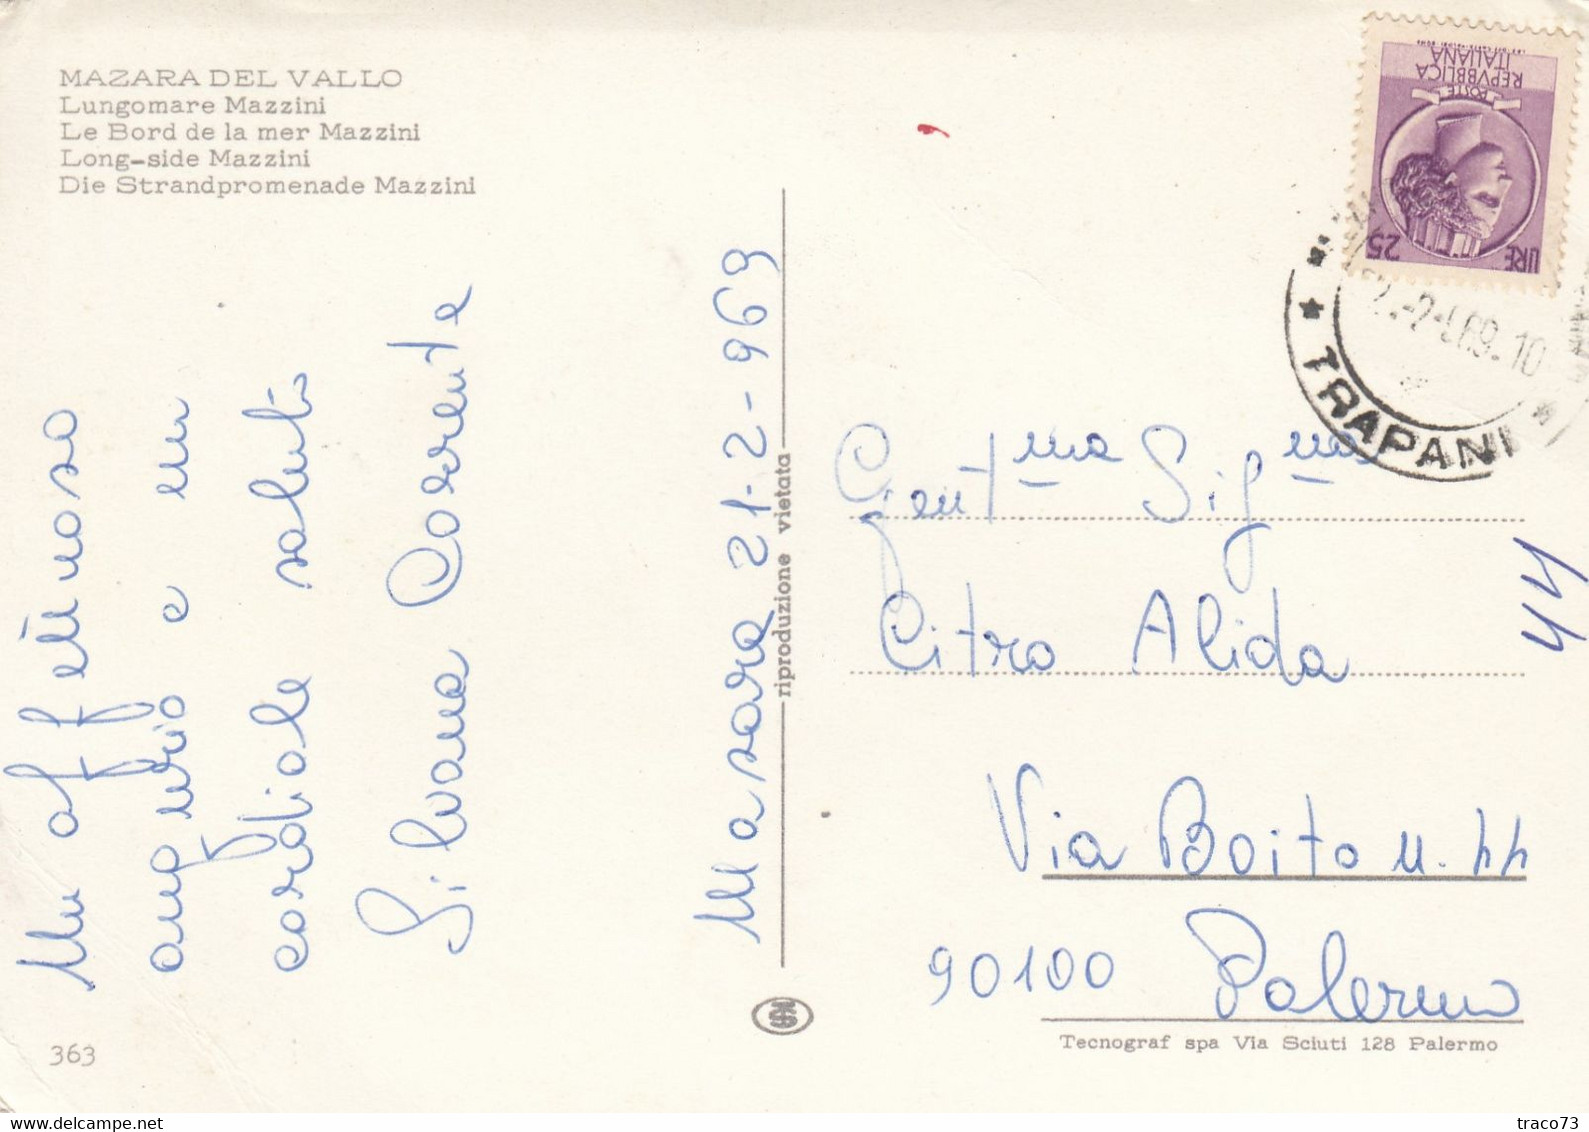 MAZARA DEL VALLO
Lungomare Mazzini
Le Bord de la mer Mazzini
Long-side Mazzini
Die Strandpromenade Mazzini
Un affettuoso
augurio e un
cordiale saluto
Silvana Corrente
Masara 21-2-969
riproduzione vietata
REPVBBLICA
ITALIANA
POSTE
LIRE 25
2.-2-69.10
TRAPANI
Gent.ma Sig.na
Citro Alida
Via Boito n. 44
90100 Palermo
44
363
Tecnograf spa Via Sciuti 128 Palermo
traco73